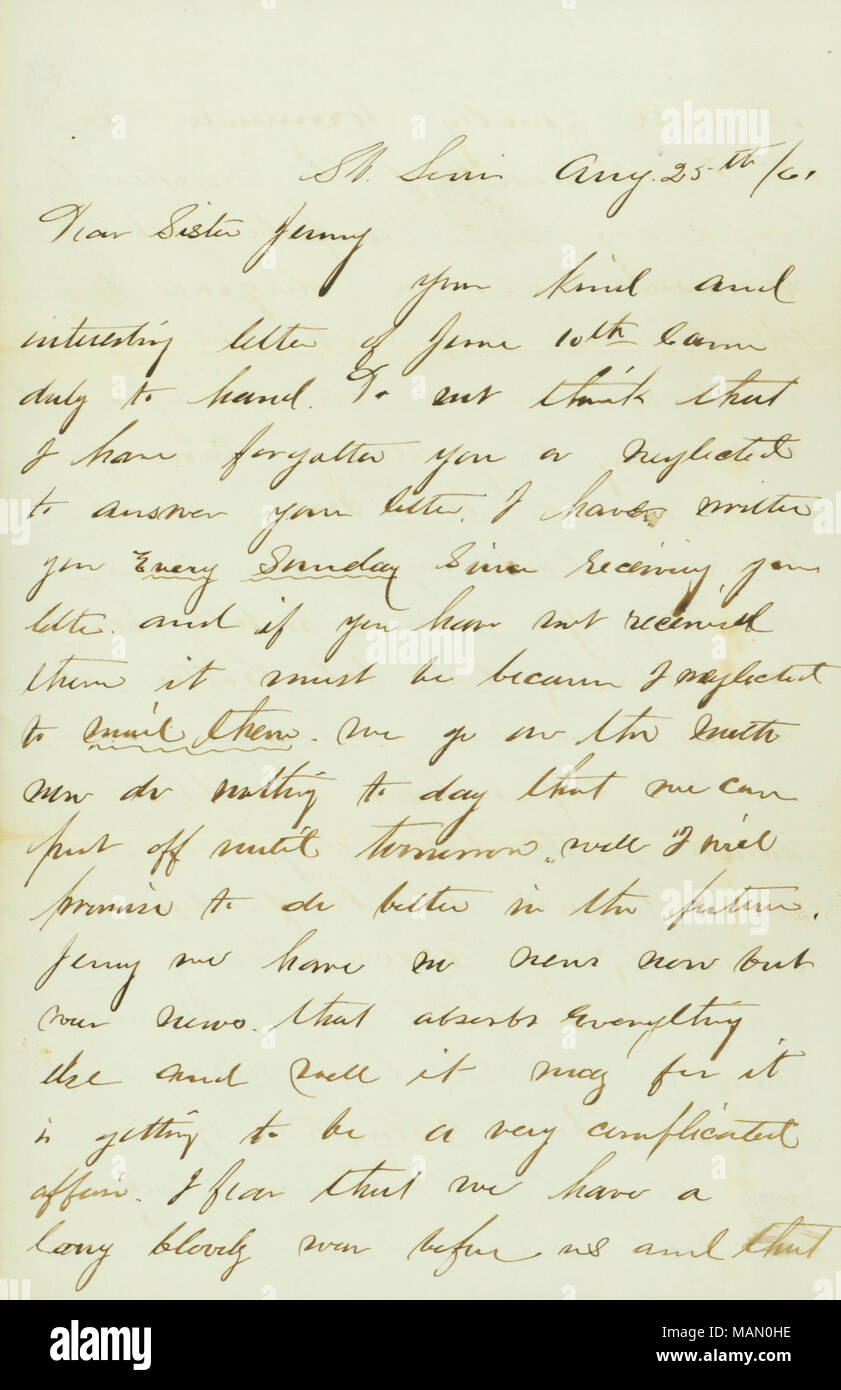 St. Louis Aug. 25th /61
Dear Sister Jenny
your kind and
interesting letter of June 10th came
duly to hand. Do not think that
I have forgotten you or neglected
to answer your letter. I have written
you Every Sunday Since receiving your
letter and if you have not received
them it must be because I neglected
to mail them. we go on the motto
now do nothing to day that we can
put off until tomorrow. well I will
promise to do better in the future.
Jenny we have no news now but
war news. that absorbs Everything
Else and well it may for it
is getting to be a very complicated
affair. I fear that we have a
long bloody war before us and that
alamy
alamy
Image ID: MAN0HE
www.alamy.com